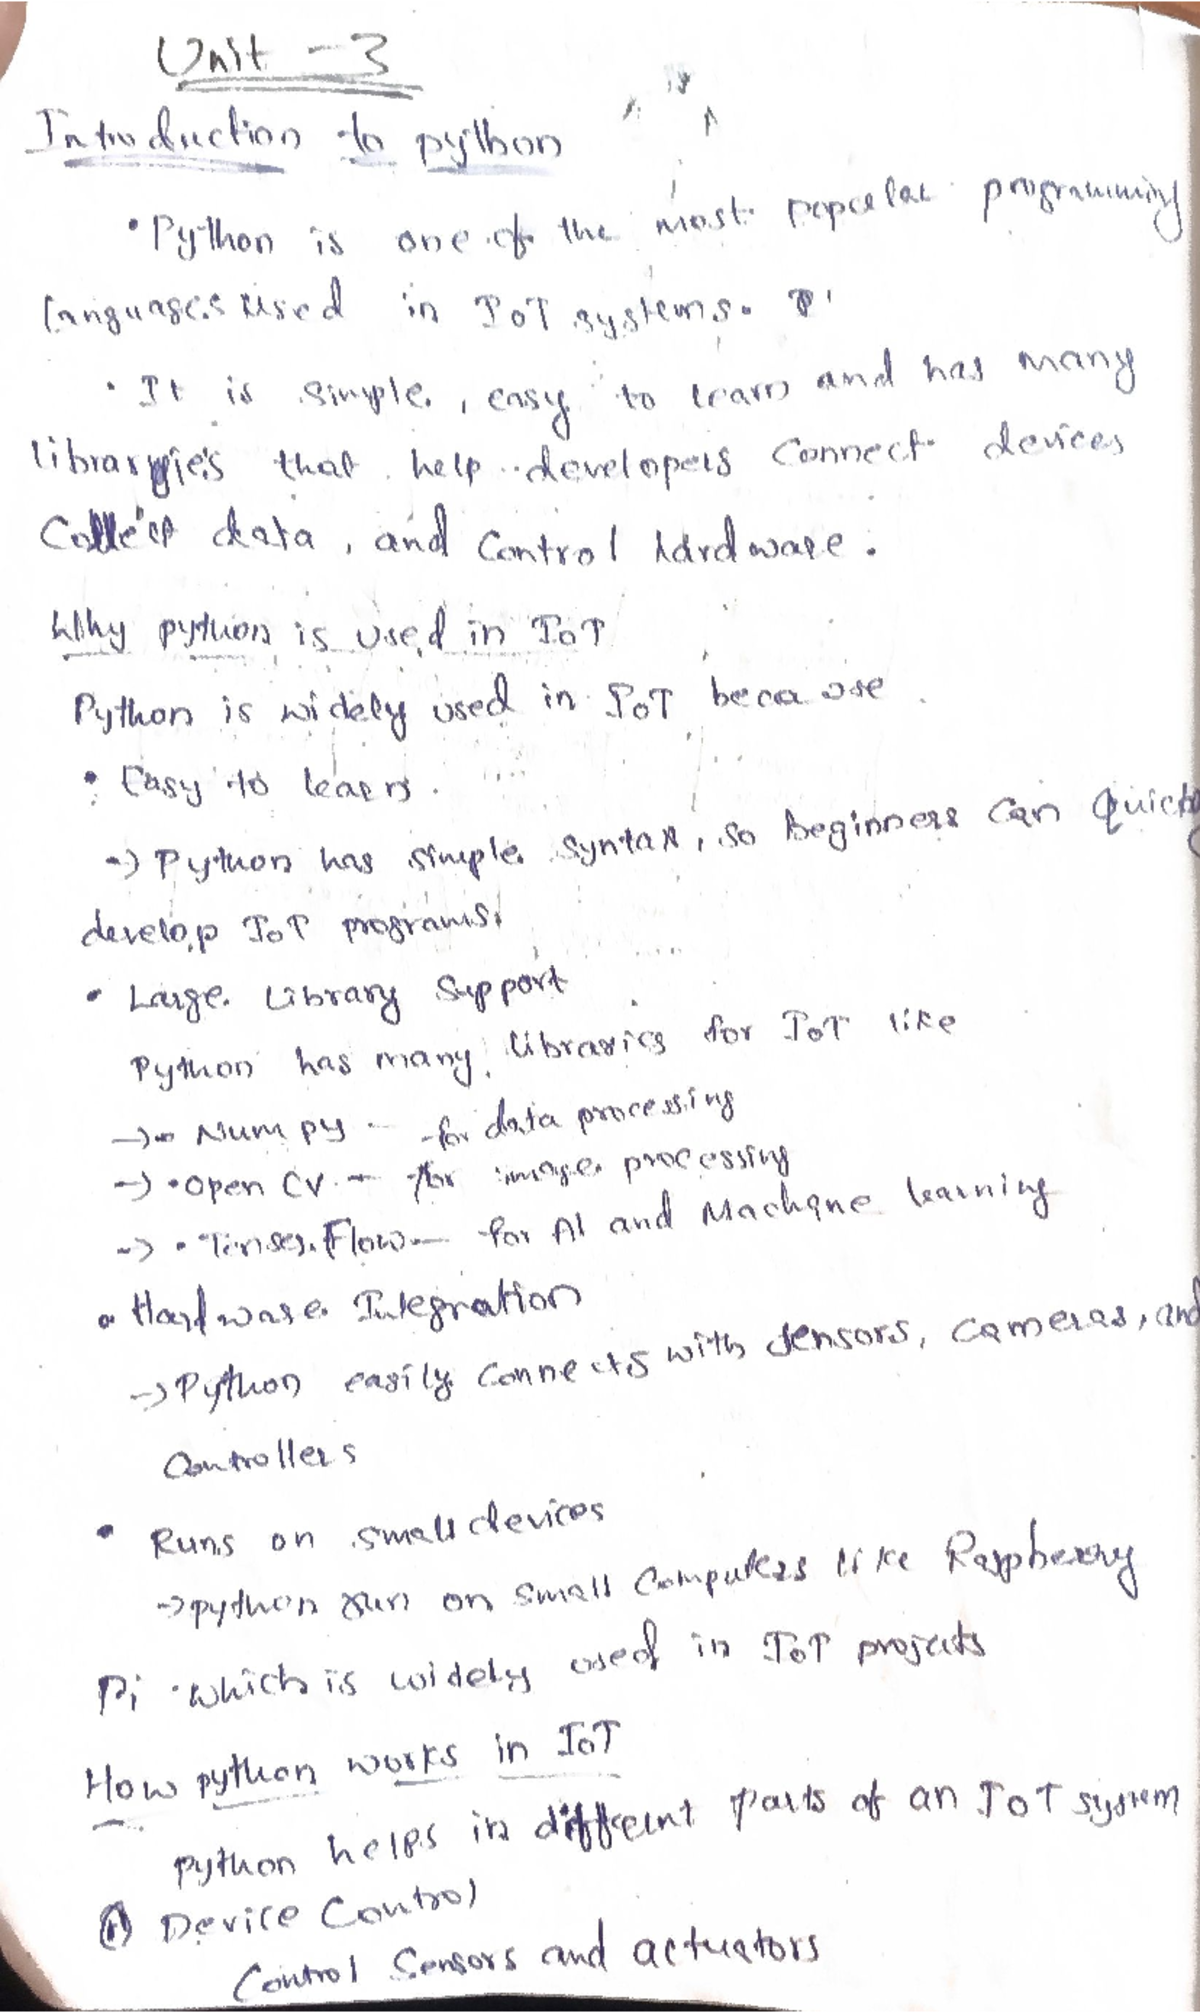 Unit - 3
Introduction to python
• Python is one of the most popular programming
languages used in IoT systems.
• It is simple, easy to learn and has many
libraries that help developers connect devices
Collect data, and control hardware.
Why python is used in IoT
Python is widely used in IoT because
• Easy to learn.
-> Python has simple syntax, so Beginners can Quickly
develop IoT programs.
• Large Library Support
Python has many libraries for IoT like
-> • Num py - for data processing
-> • Open CV - for image processing
-> • Tenser Flow - for AI and Machine learning
• Hardware Integration
-> Python easily connects with sensors, cameras, and
Controllers
• Runs on small devices
-> python run on small computers like Raspberry
Pi which is widely used in IoT projects
How python works in IoT
python helps in different parts of an IoT system
① Device Control
Control Sensors and actuators